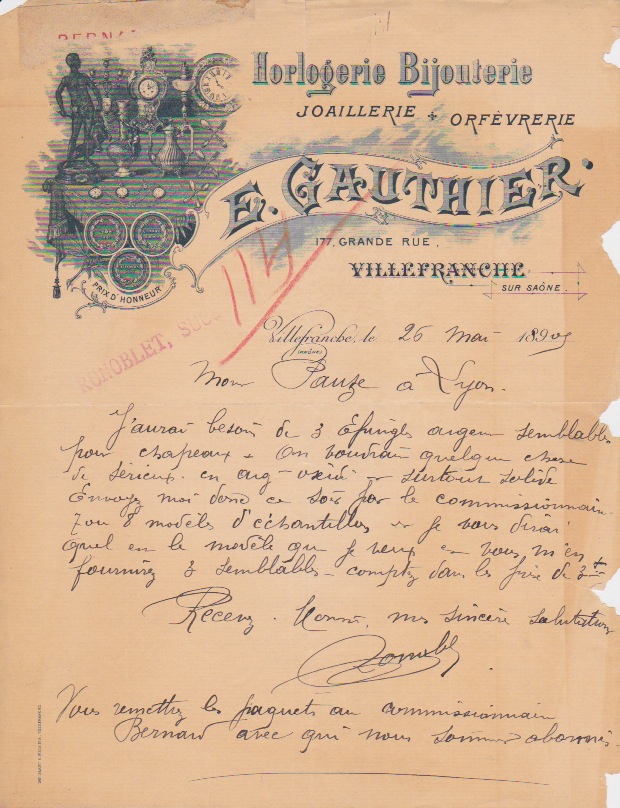 BERNA
Horlogerie Bijouterie
JOAILLERIE + ORFÈVRERIE
E. GAUTHIER.
177, GRANDE RUE,
VILLEFRANCHE
SUR SAÔNE.
PRIX D'HONNEUR
114
RONOBLET, SUC
Villefranche, le 26 Mai 189
(RHÔNE)
Monr Pauze à Lyon.
J'aurai besoin de 3 Épingles argent semblables
pour chapeaux On voudrait quelque chose
de sérieux en arg-oxidé surtout solide
Envoyez moi donc ce soir par le commissionnaire
7 ou 8 modèles d'échantillons je vous dirai
quel est le modèle que je veux vous m'en
fournirez 3 semblables - comptez dans les prix de 3
Recevez Monsr, mes sincère salutations
Ronoblet
Vous remettrez les paquets au commissionnaire
Bernard avec qui nous sommes abonnés.